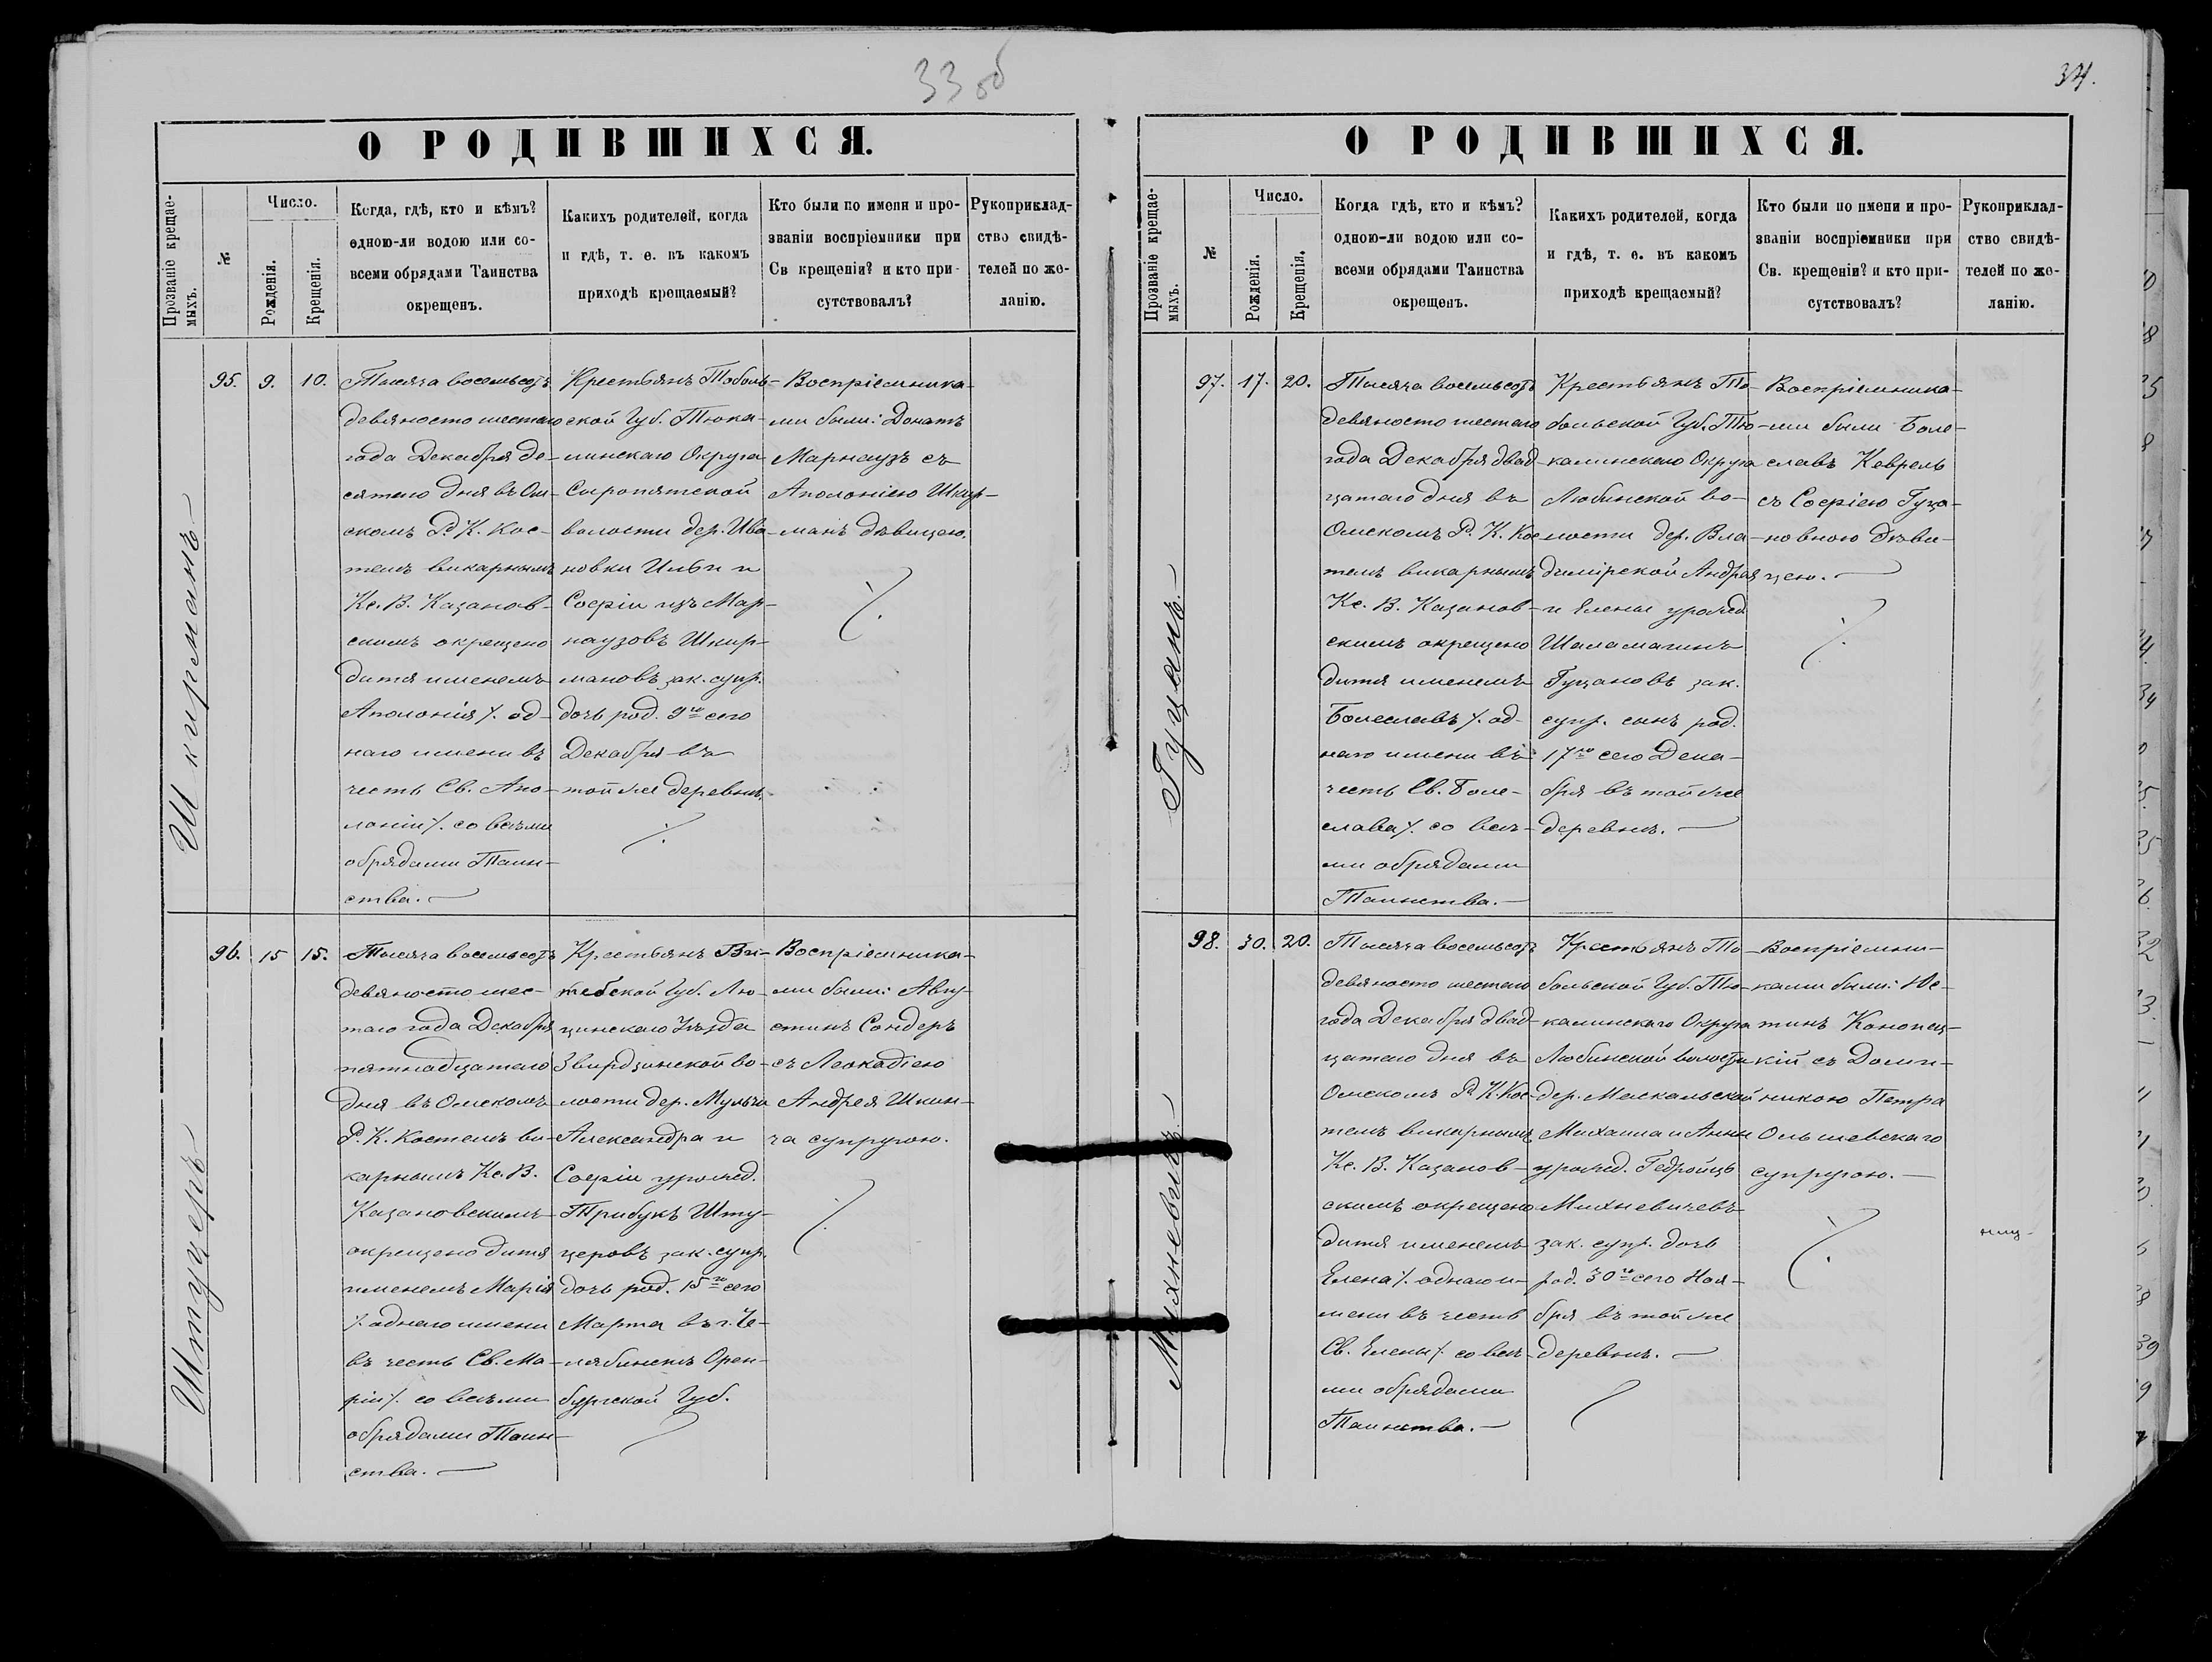 33 об
О РОДИВШИХСЯ.
Прозваніе крещае-
мыхъ.
№
Число.
Рожденія.
Крещенія.
Когда, гдѣ, кто и кѣмъ?
одною-ли водою или со-
всеми обрядами Таинства
окрещенъ.
Какихъ родителей, когда
и гдѣ, т. е. въ какомъ
приходѣ крещаемый?
Кто были по имени и про-
званіи воспріемники при
Св крещеніи? и кто при-
сутствовалъ?
Рукоприклад-
ство свидѣ-
телей по же-
ланію.
Шкирманъ
95.
9.
10.
Тысяча восемьсотъ
девяносто шестаго
года Декабря де-
сятаго дня въ Ом-
скомъ Р. К. Кос-
телѣ викарнымъ
Кс. В. Казанов-
скимъ окрещено
дитя именемъ
Аполонія /. од-
наго имени въ
честь Св. Апо-
лоніи /. со всѣми
обрядами Таин-
ства.
Крестьянъ Тоболь-
ской Губ. Тюка-
линскаго Округа
Сыропятской
волости дер. Ива-
новки Ильи и
Софіи изъ Мар-
наузовъ Шкир-
мановъ зак. супр.
дочь род. 9го сего
Декабря въ
той же деревнѣ.
Воспріемника-
ми были: Донатъ
Марнаузъ съ
Аполоніею Шкир-
манъ дѣвицею.
Штуцеръ
96.
15
15.
Тысяча восемьсотъ
девяносто шес-
таго года Декабря
пятнадцатаго
дня въ Омскомъ
Р. К. Костелѣ ви-
карнымъ Кс. В.
Казановскимъ
окрещено дитя
именемъ Марія
/. однаго имени
въ честь Св. Ма-
ріи /. со всѣми
обрядами Таин-
ства.
Крестьянъ Ви-
тебской Губ. Лю-
цинскаго Уѣзда
Звирдзинской во-
лости дер. Мульчи
Александра и
Софіи урожд.
Трибукъ Шту-
церовъ зак. супр.
дочь род. 15го сего
Марта въ г. Че-
лябинскѣ Орен-
бургской Губ.
Воспріемника-
ми были: Авгу-
стинъ Сондеръ
съ Леокадіею
Андрея Шкин-
ча супругою.
34.
О РОДИВШИХСЯ.
Прозваніе крещае-
мыхъ.
№
Число.
Рожденія.
Крещенія.
Когда гдѣ, кто и кѣмъ?
одною-ли водою или со-
всеми обрядами Таинства
окрещенъ.
Какихъ родителей, когда
и гдѣ, т. е. въ какомъ
приходѣ крещаемый?
Кто были по имени и про-
званіи воспріемники при
Св. крещеніи? и кто при-
сутствовалъ?
Рукоприклад-
ство свидѣ-
телей по же-
ланію.
Гуцанъ.
97.
17.
20.
Тысяча восемьсотъ
девяносто шестаго
года Декабря двад-
цатаго дня въ
Омскомъ Р. К. Кос-
телѣ викарнымъ
Кс. В. Казанов-
скимъ окрещено
дитя именемъ
Болеславъ /. од-
наго имени въ
честь Св. Боле-
слава /. со всѣ-
ми обрядами
Таинства.
Крестьянъ То-
больской Губ. Тю-
калинскаго Округа
Любинской во-
лости дер. Вла-
димірской Андрея
и Елены урожд
Шаламагинъ
Гуцановъ зак.
супр. сынъ род.
17го сего Дека-
бря въ той же
деревнѣ.
Воспріемника-
ми были Боле-
славъ Кеврель
съ Софіею Гуца-
новною дѣви-
цею.
Михневичъ.
98.
30.
20.
Тысяча восемьсотъ
девяносто шестаго
года Декабря двад-
цатаго дня въ
Омскомъ Р. К. Кос-
телѣ викарнымъ
Кс. В. Казанов-
скимъ окрещено
дитя именемъ
Елена /. однаго и-
мени въ честь
Св. Елены /. со всѣ-
ми обрядами
Таинства.
Крестьянъ То-
больской Губ. Тю-
калинскаго Округа
Любинской волости
дер. Маскальской
Михаила и Анны
урожд. Гедройць
Михневичевъ
зак. супр. дочь
род. 30го сего Ноя-
бря въ той же
деревнѣ.
Воспріемни-
ками были: Юс-
тинъ Конопец-
кій съ Доми-
никою Петра
Ольшевскаго
супругою.